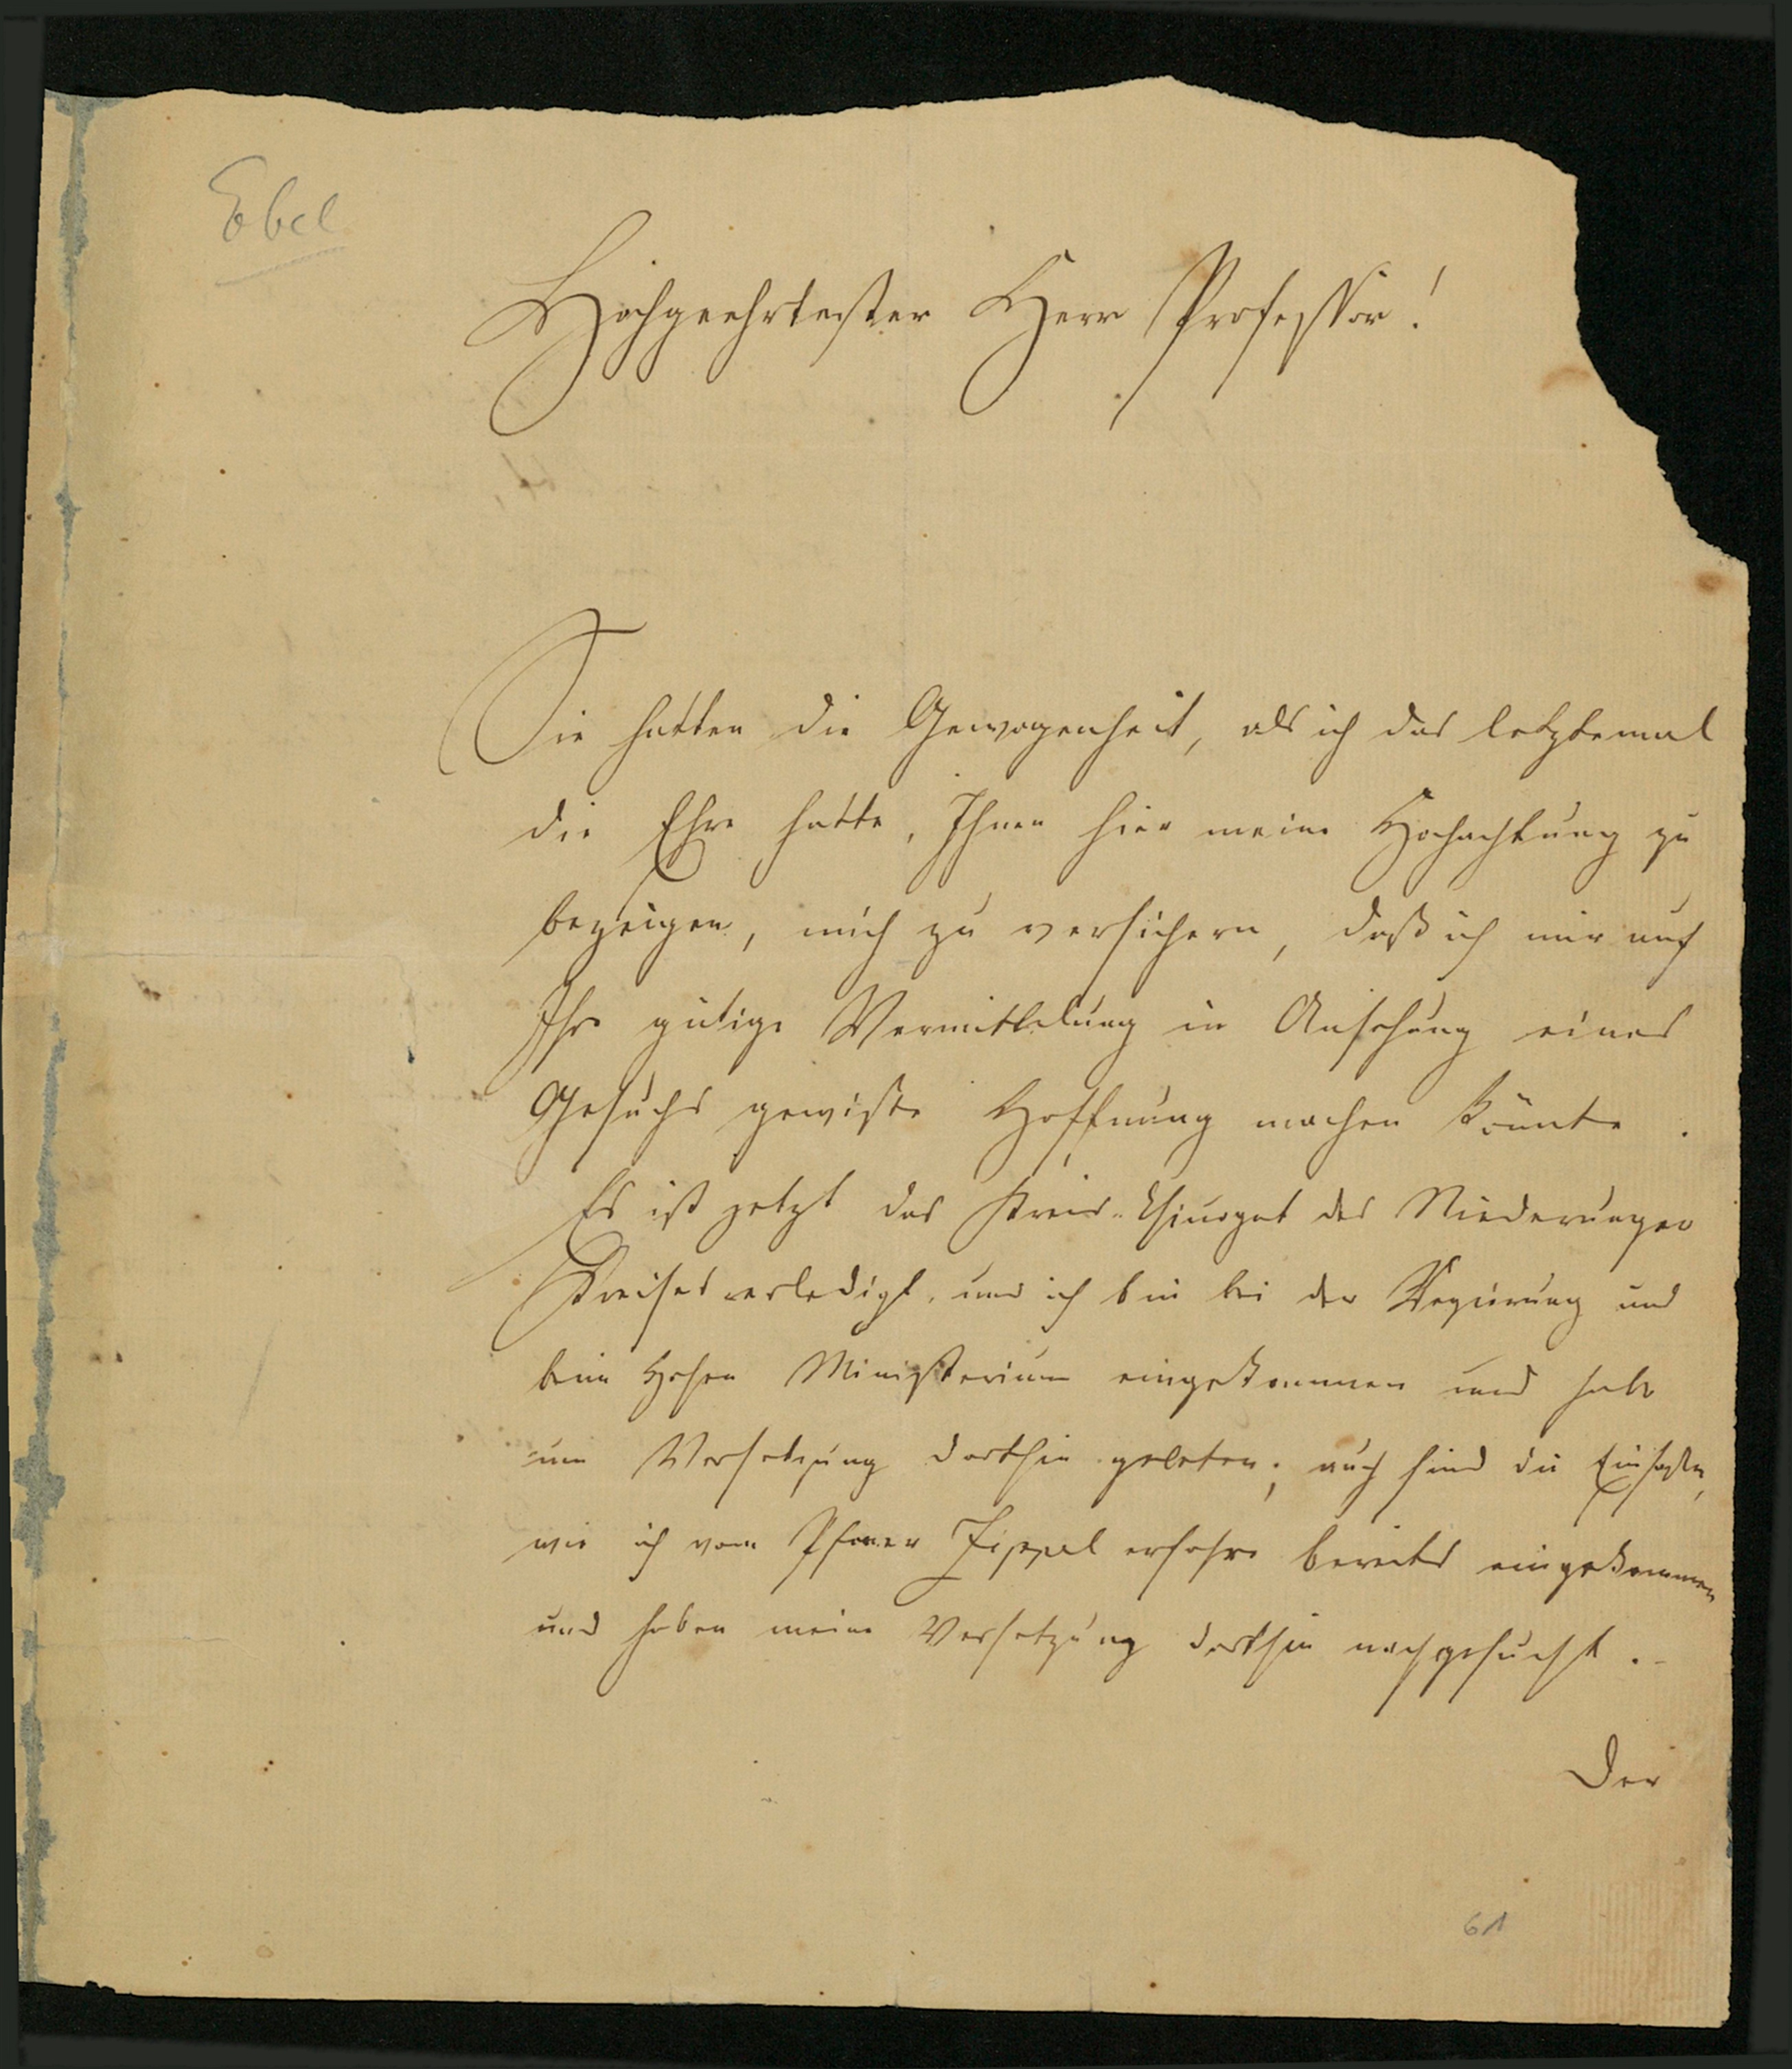 Ebel
Hochgeehrtester Herr Professor!
Sie hatten die Gewogenheit, als ich das letztemal
die Ehre hatte, Ihnen hier meine Hochachtung zu
bezeigen, mich zu versichern, daß ich mir auf
Ihre gütige Vermittelung in Ansehung eines
Gesuchs gewisse Hoffnung machen könnte.
Es ist jetzt das Kreis-Chirurgat des Niederunger
Kreises erledigt, und ich bin bei der Regierung und
beim Hohen Ministerium eingekommen und habe
um Versetzung dorthin gebeten; auch sind die Einsaßen,
wie ich vom Pfarrer Zippel erfahre bereits eingekommen
und haben meine Versetzung dorthin nachgesucht.-
Der
61